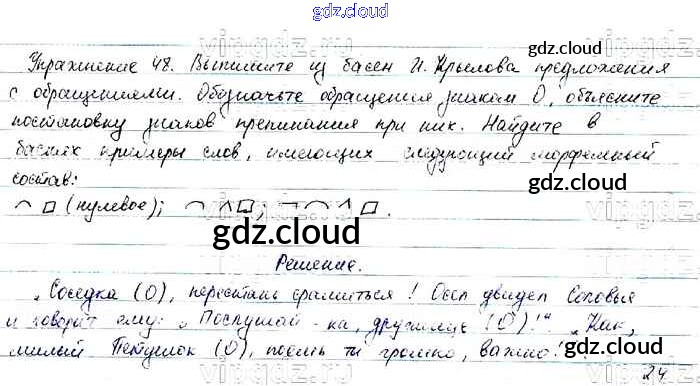 gdz.cloud
gdz.cloud
Упражнение 48. Выпишите из басен И. Крылова предложения
с обращениями. Обозначьте обращения знаком О, объясните
постановку знаков препинания при них. Найдите в
баснях примеры слов, имеющих следующий морфемный
состав:
gdz.cloud
(нулевое);
gdz.cloud
Решение.
„Соседка (О), перестань срамиться! Осёл увидел Соловья
и говорит ему: „Послушай-ка, дружище (О)!" „Как,
милый Петушок (О), поёшь ты громко, важно!
gdz.cloud
24